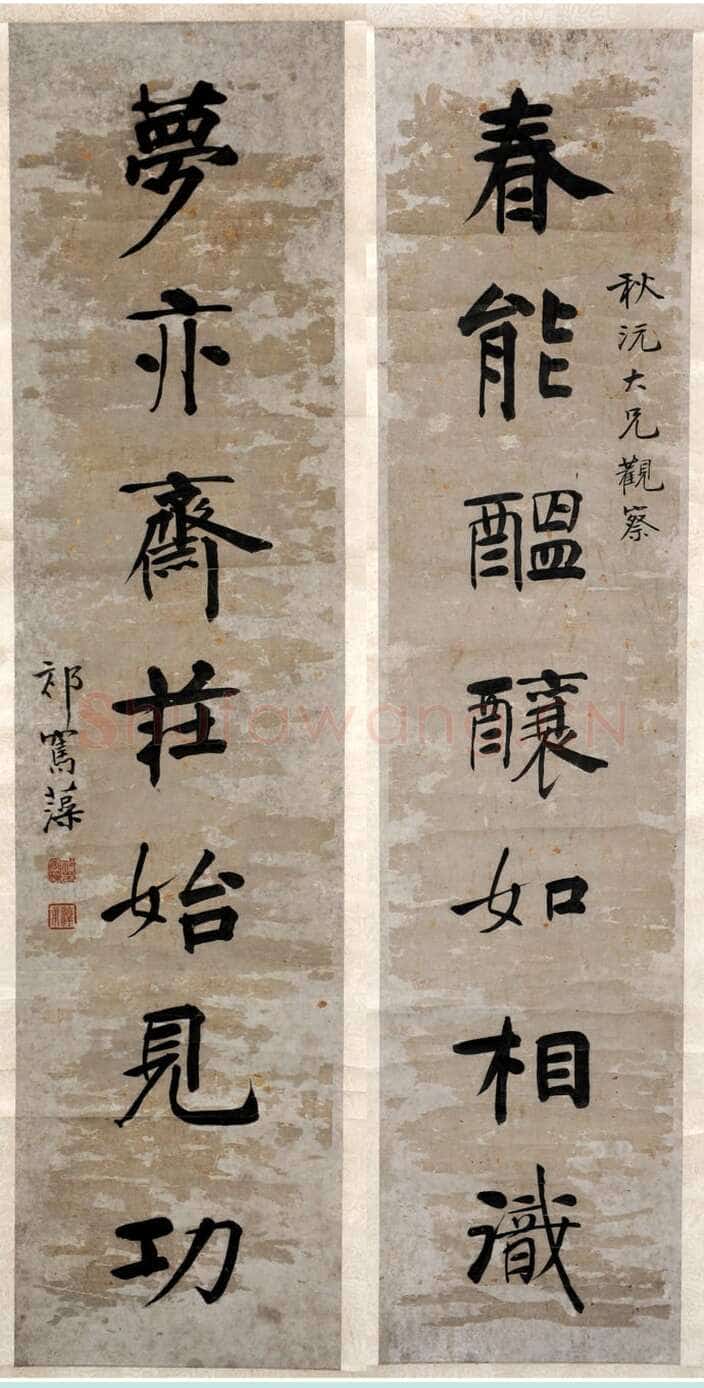 秋沅大兄觀察
春能醞釀如相識
夢亦齋莊始見功
祁寯藻
ShufawangCN